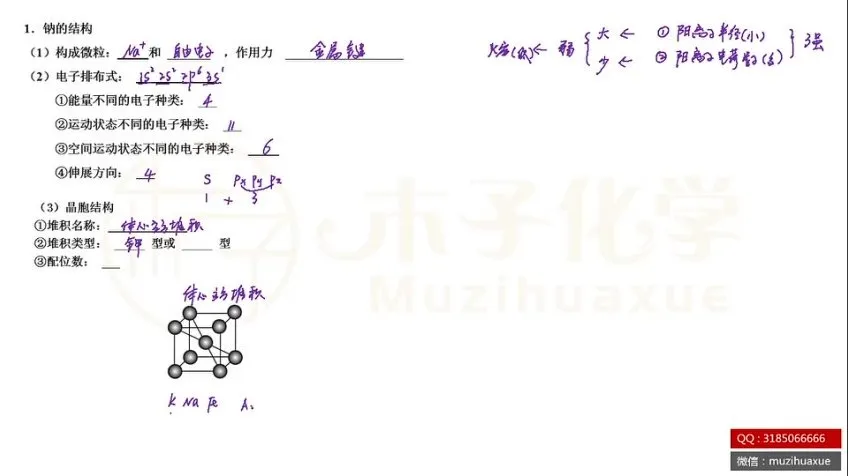 1. 钠的结构
（1）构成微粒：Na⁺和 自由电子 ，作用力 金属键
（2）电子排布式：1s²2s²2p⁶3s¹
①能量不同的电子种类： 4
②运动状态不同的电子种类： 11
③空间运动状态不同的电子种类： 6
④伸展方向： 4
S Px Py Pz
1 + 3
（3）晶胞结构
①堆积名称：体心立方堆积
②堆积类型： 钾 型或 型
③配位数：
体心立方堆积
K Na Fe A
(低) ← 弱
大 ← ① 阳离子半径(小)
少 ← ② 阳离子电荷数(多)
强
木子化学
Muzihuaxue
QQ：3185066666
微信：muzihuaxue